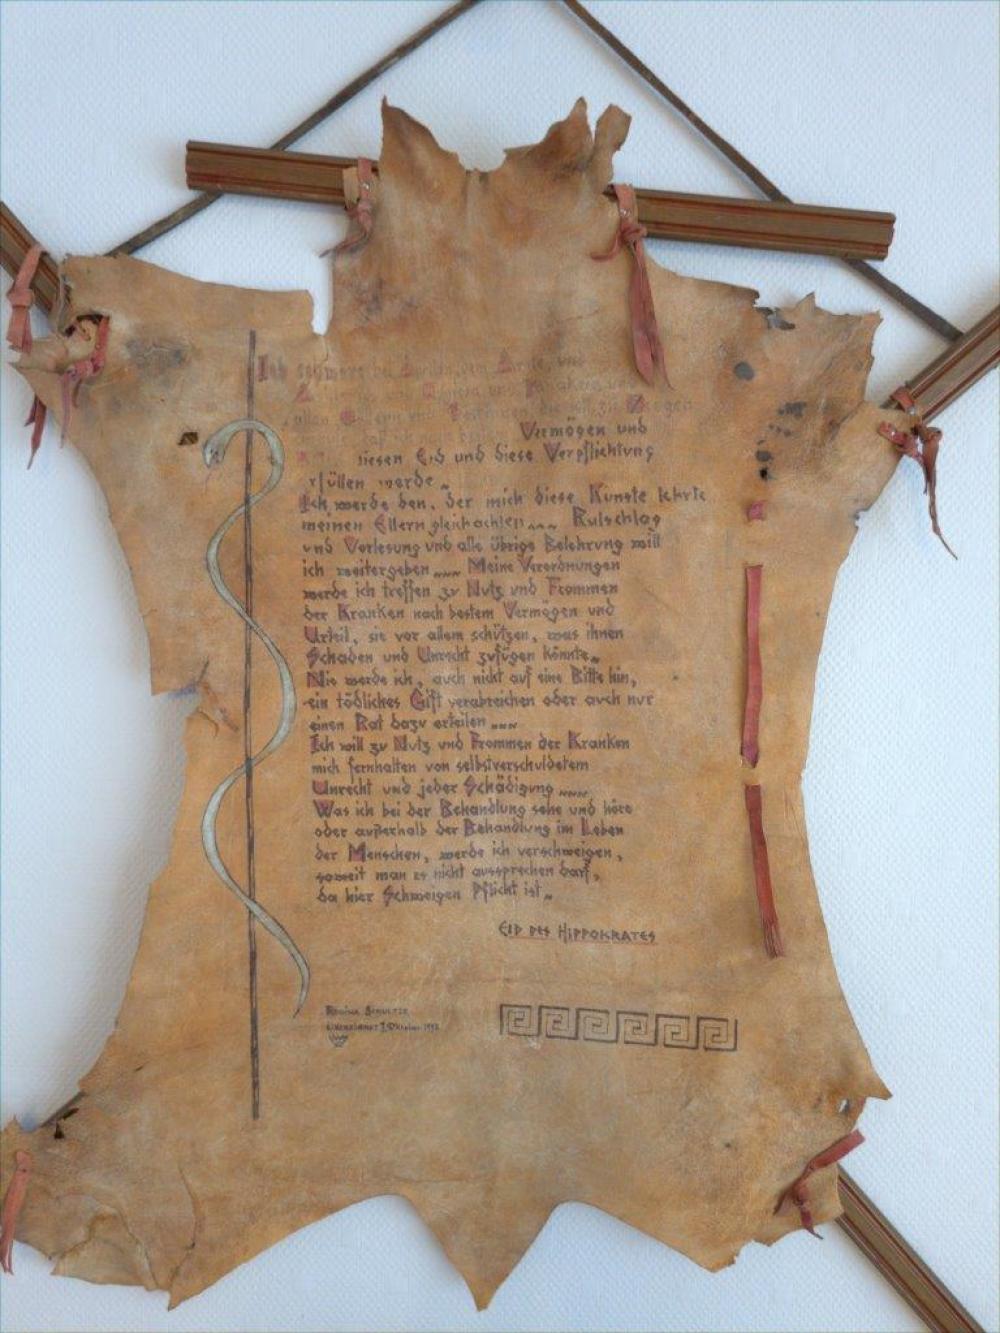 Ich schwöre bei Apollon, dem Arzte, und
und
allen Göttern und
Vermögen und
diesen Eid und diese Verpflichtung
rfüllen werde„
Ich werde den, der mich diese Künste lehrte
meinen Eltern gleich achten„„„ Ratschlag
und Vorlesung und alle übrige Belehrung will
ich weitergeben„„„ Meine Verordnungen
werde ich treffen zu Nutz und Frommen
der Kranken nach bestem Vermögen und
Urteil, sie vor allem schützen, was ihnen
Schaden und Unrecht zufügen könnte„
Nie werde ich, auch nicht auf eine Bitte hin,
ein tödliches Gift verabreichen oder auch nur
einen Rat dazu erteilen„„„
Ich will zu Nutz und Frommen der Kranken
mich fernhalten von selbstverschuldetem
Unrecht und jeder Schädigung„„„
Was ich bei der Behandlung sehe und höre
oder außerhalb der Behandlung im Leben
der Menschen, werde ich verschweigen,
soweit man es nicht aussprechen darf,
da hier Schweigen Pflicht ist„
EID DES HIPPOKRATES
REGINA SCHULTZE